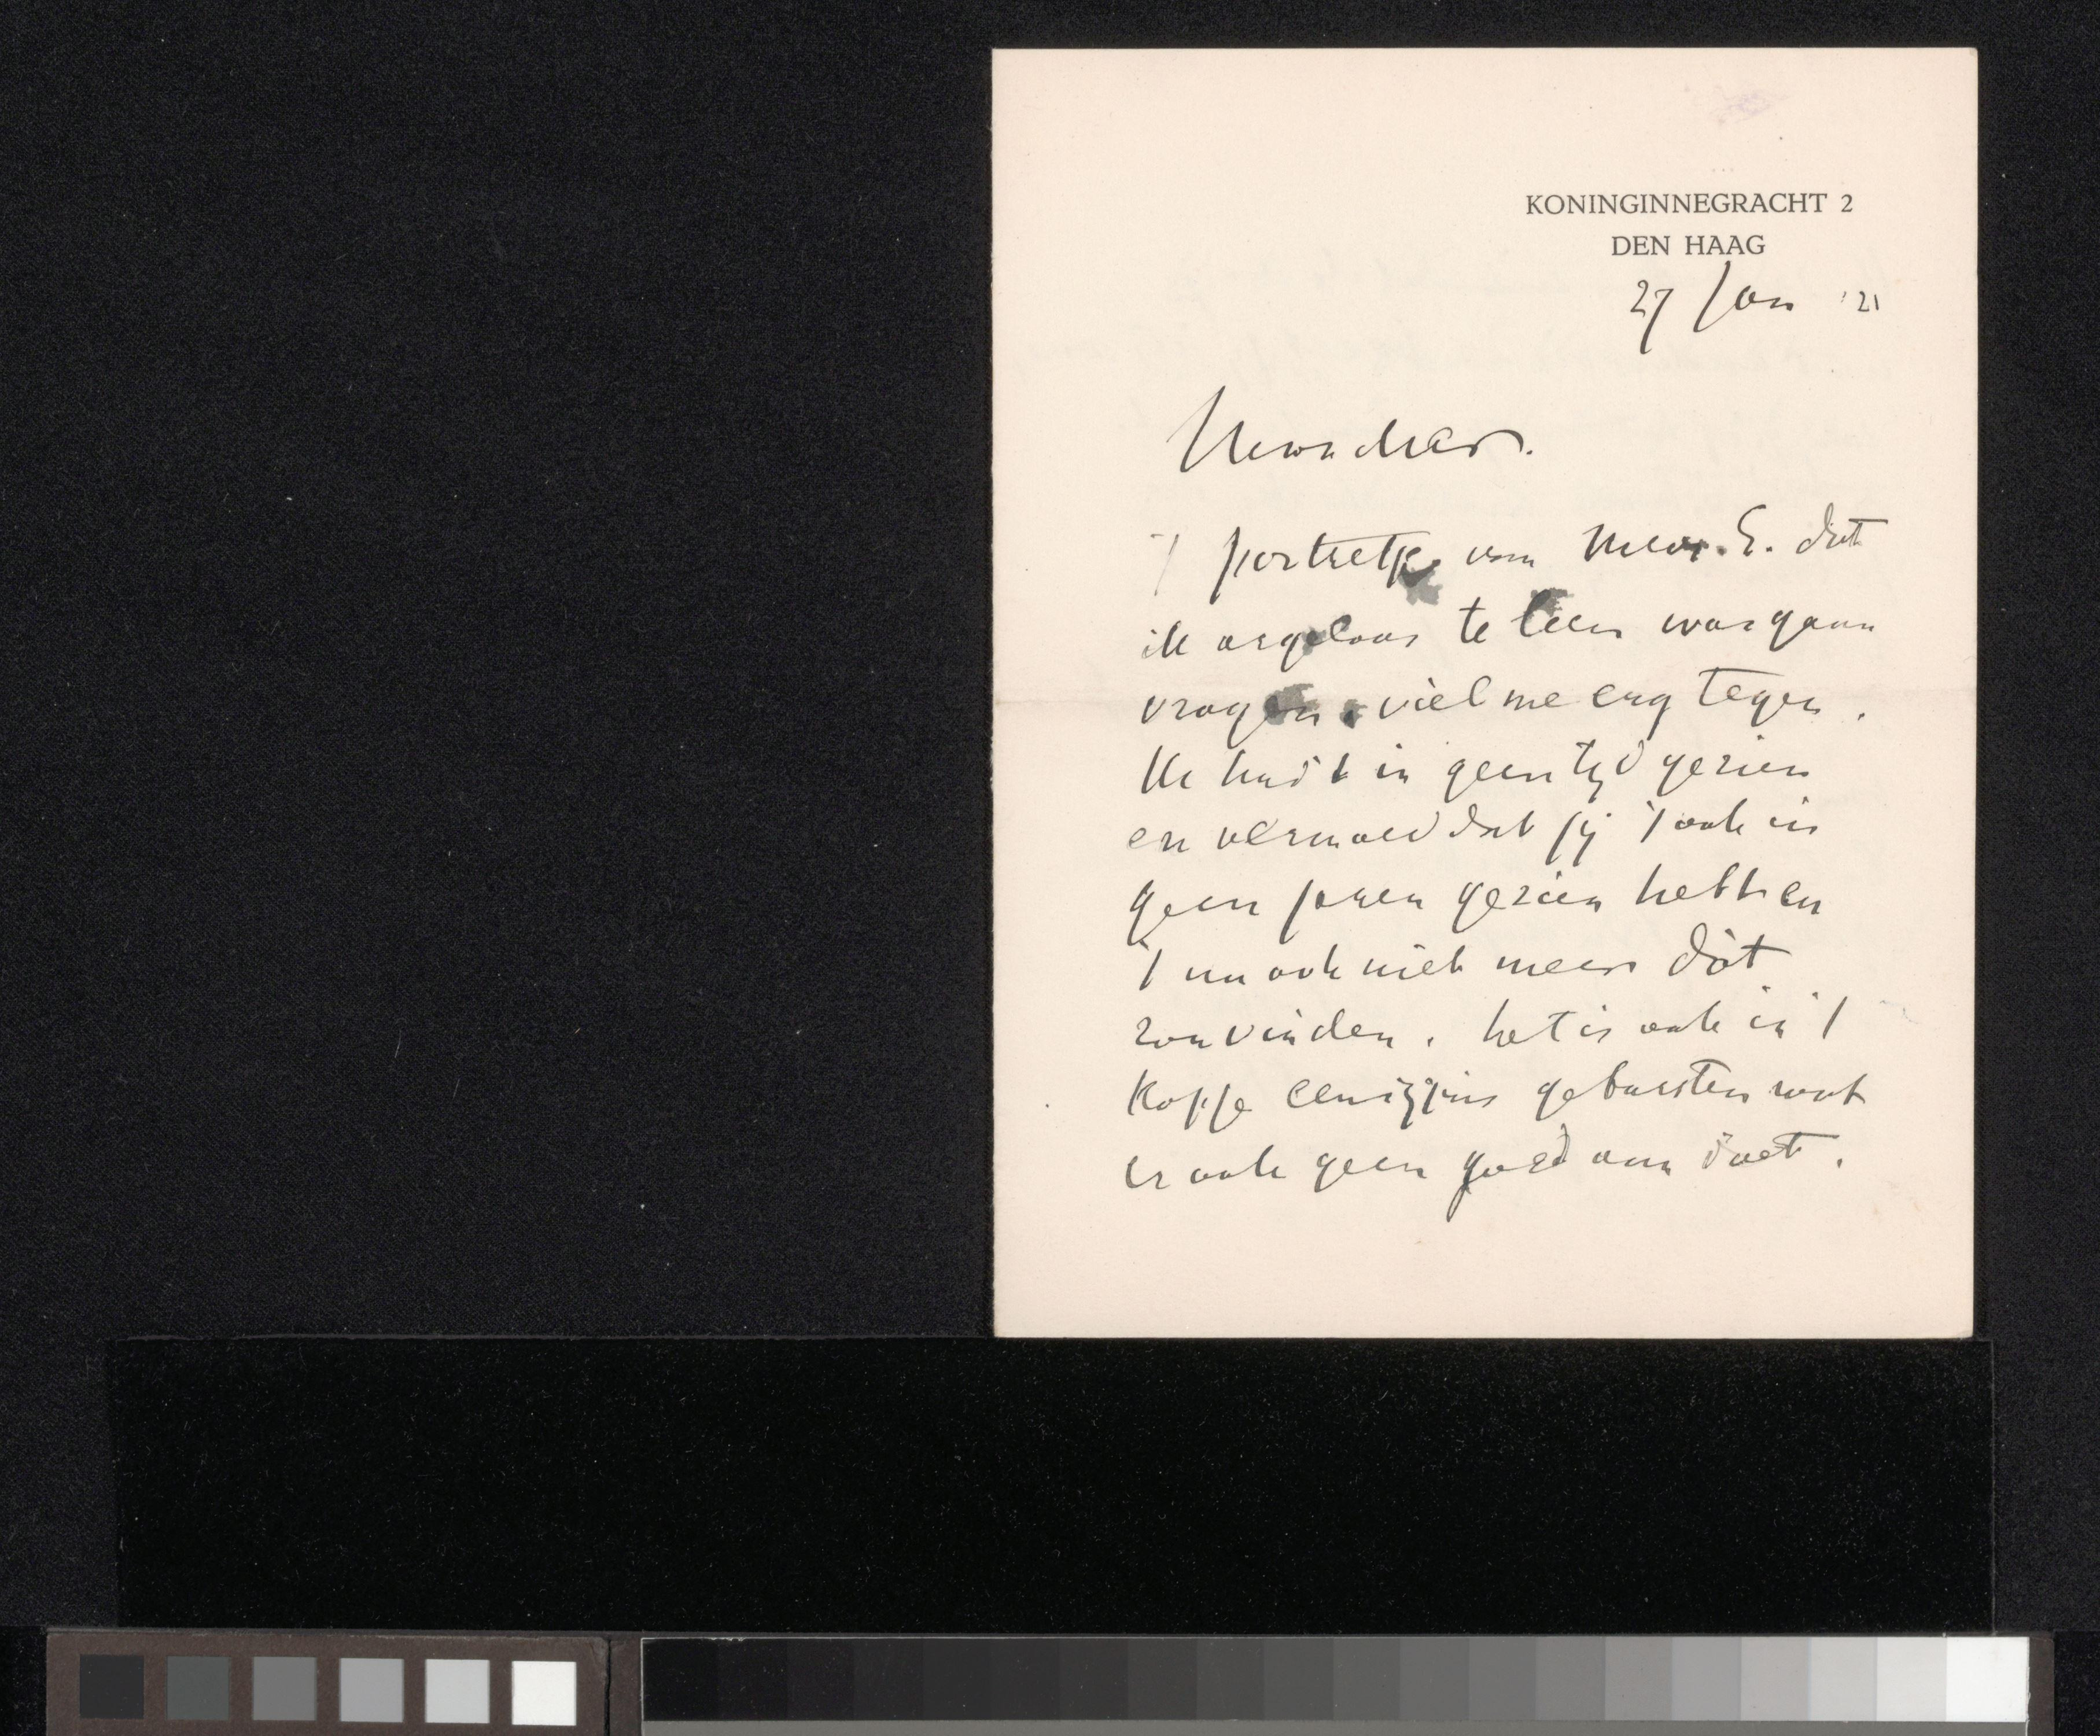 KONINGINNEGRACHT 2
DEN HAAG
27 Jan '21
't portretje van Mevr. S. dat
ik argeloos te leen was gaan
vragen, viel me erg tegen.
Ik had 't in geen tijd gezien
en vermoed dat jij 't ook in
geen jaren gezien hebt en
't nu ook niet meer dàt
zou vinden. het is ook in 't
kopje eenigzins gebarsten wat
er ook geen goed aan doet.